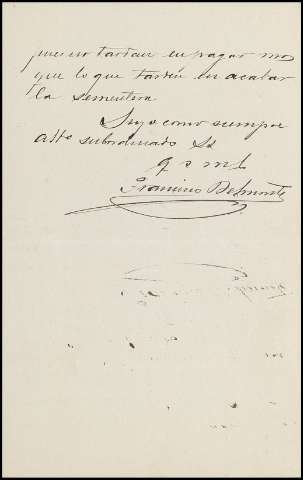 pues no tardan en pagar mas
que lo que tarden en acabar
la sementera
Suyo como siempre
affo subordinado Ss
q s m b
Francisco Belmonte